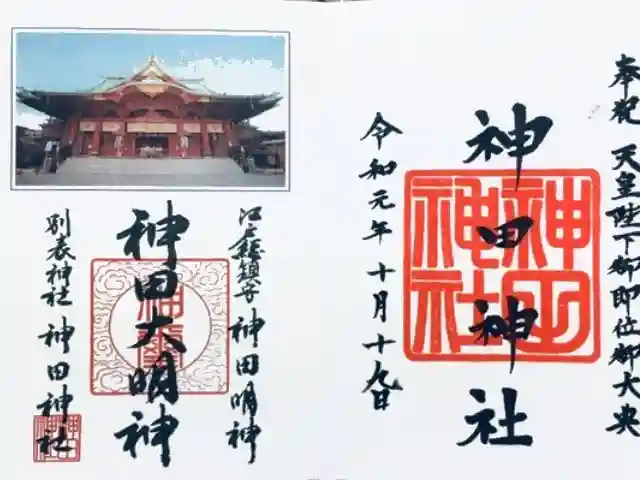 奉祝 天皇陛下御即位御大典
神田神社
神田神社
令和元年十月十九日
江戸総鎮守 神田明神
神田大明神
別表神社 神田神社